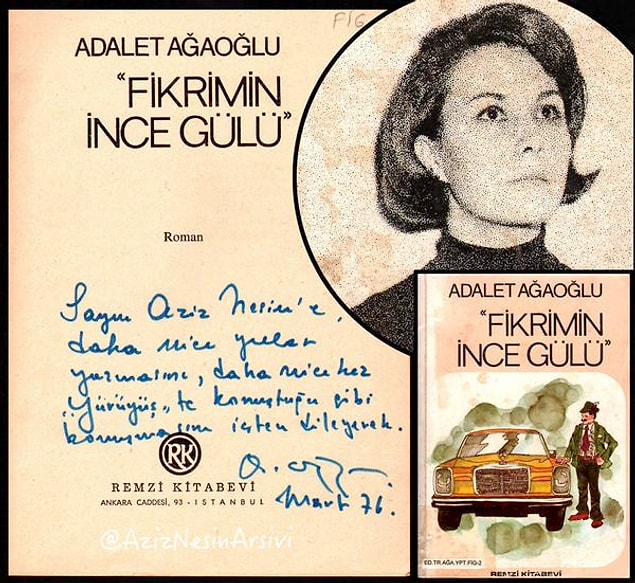 FİG
ADALET AĞAOĞLU
“FİKRİMİN
İNCE GÜLÜ”
Roman
Sayın Aziz Nesin'e,
daha nice yıllar
yazmasını, daha nice kez
"Yürüyüş"te konuştuğu gibi
konuşmasını içten dileyerek.
Mart 76.
RK
REMZİ KİTABEVİ
ANKARA CADDESİ, 93 - İSTANBUL
@AzizNesinArsivi
ADALET AĞAOĞLU
“FİKRİMİN
İNCE GÜLÜ”
ED.TR.AĞA.YPT.FİG-2
REMZİ KİTABEVİ